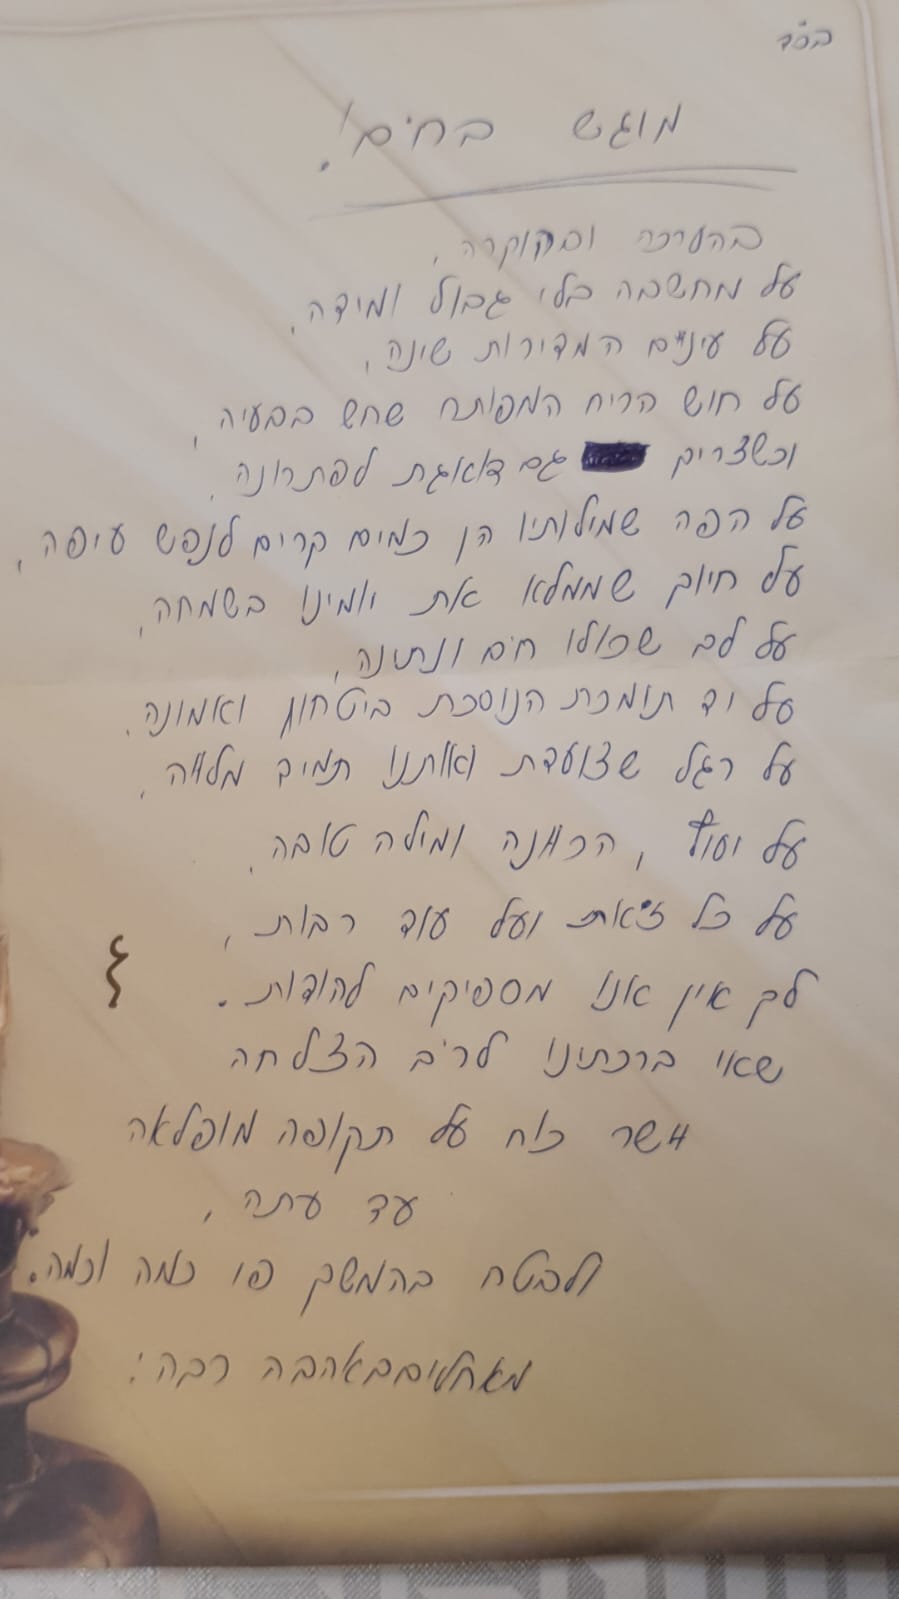 בס"ד
מוגש בחום!
בהערכה ובהוקרה,
על מחשבה בלי גבול ומידה,
על עיניים המדירות שינה,
על חוש הריח המפותח שחש בבעיה,
וכשצריך גם דואגת לפתרונה,
על הפה שמילותיו הן כמים קרים לנפש עיפה,
על חיוך שממלא את יומינו בשמחה,
על לב שכולו חום ונתינה,
על יד תומכת הנוסכת ביטחון ואמונה,
על רגל שצועדת ואותנו תמיד מלווה,
על יעוץ, הכוונה ומילה טובה,
על כל זאת ועל עוד רבות,
לך אין אנו מספיקים להודות.
שאי ברכתינו לרוב הצלחה
יישר כוח על תקופה מופלאה
עד עתה,
ולבטח בהמשך פי כמה וכמה.
מאחלים באהבה רבה: